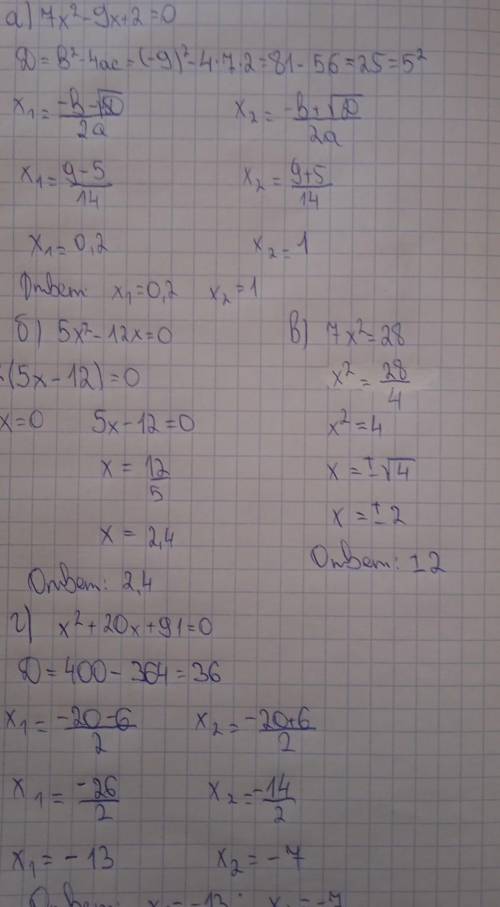 а) 7x² - 9x + 2 = 0
D = b² - 4ac = (-9)² - 4 · 7 · 2 = 81 - 56 = 25 = 5²
x₁ = (-b - √D)/2a    x₂ = (-b + √D)/2a
x₁ = (9 - 5)/14    x₂ = (9 + 5)/14
x₁ = 0,2    x₂ = 1
Ответ: x₁ = 0,2  x₂ = 1
б) 5x² - 12x = 0
(5x - 12) = 0
x = 0    5x - 12 = 0
x = 12/5
x = 2,4
Ответ: 2,4
в) 7x² = 28
x² = 28/4
x² = 4
x = ±√4
x = ±2
Ответ: ±2
г) x² + 20x + 91 = 0
D = 400 - 364 = 36
x₁ = (-20 - 6)/2    x₂ = (-20 + 6)/2
x₁ = -26/2    x₂ = -14/2
x₁ = -13    x₂ = -7
Ответ: x₁ = -13; x₂ = -7